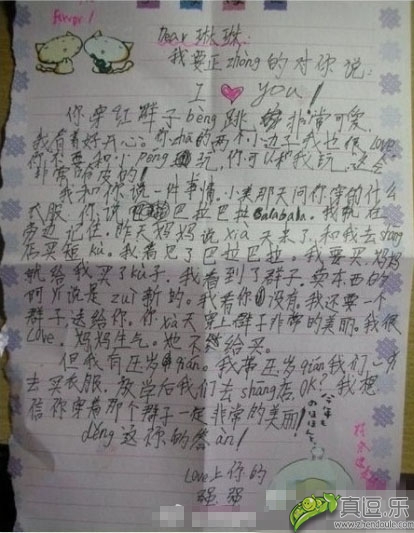 Forever!
Dear 琳琳:
我要正zhòng的对你说:
I ♥ you!
你穿红群子bèng跳 非常可爱,
我看着好开心。你zhā的两个小边子我也很love.
你不要和小peng玩,你可以和我玩,这会
非常有皮的!
我和你说一件事情。小美那天问你穿的什么
衣服,你说巴拉巴拉Balabala.我就在
旁边记住。昨天妈妈说xià天来了,和我去shāng
店买短kù。我看见了巴拉巴拉,我要买,妈妈
就给我买了kù子。我看到了群子。卖东西的
阿yí说是zuì新的。我看你没有。我还要一个
群子送给你。你xià天穿上群子非常的美丽。我很
Love. 妈妈生气。她不给买。
但我有压岁qián。我带压岁qián我们一齐
去买衣服。放学后我们去shāng店.OK?我想
信你穿着那个群子一定非常的美丽!
děng这你的答àn!
Love上你的
强强
今年も
のほほんと
真逗.乐
www.zhendoule.com